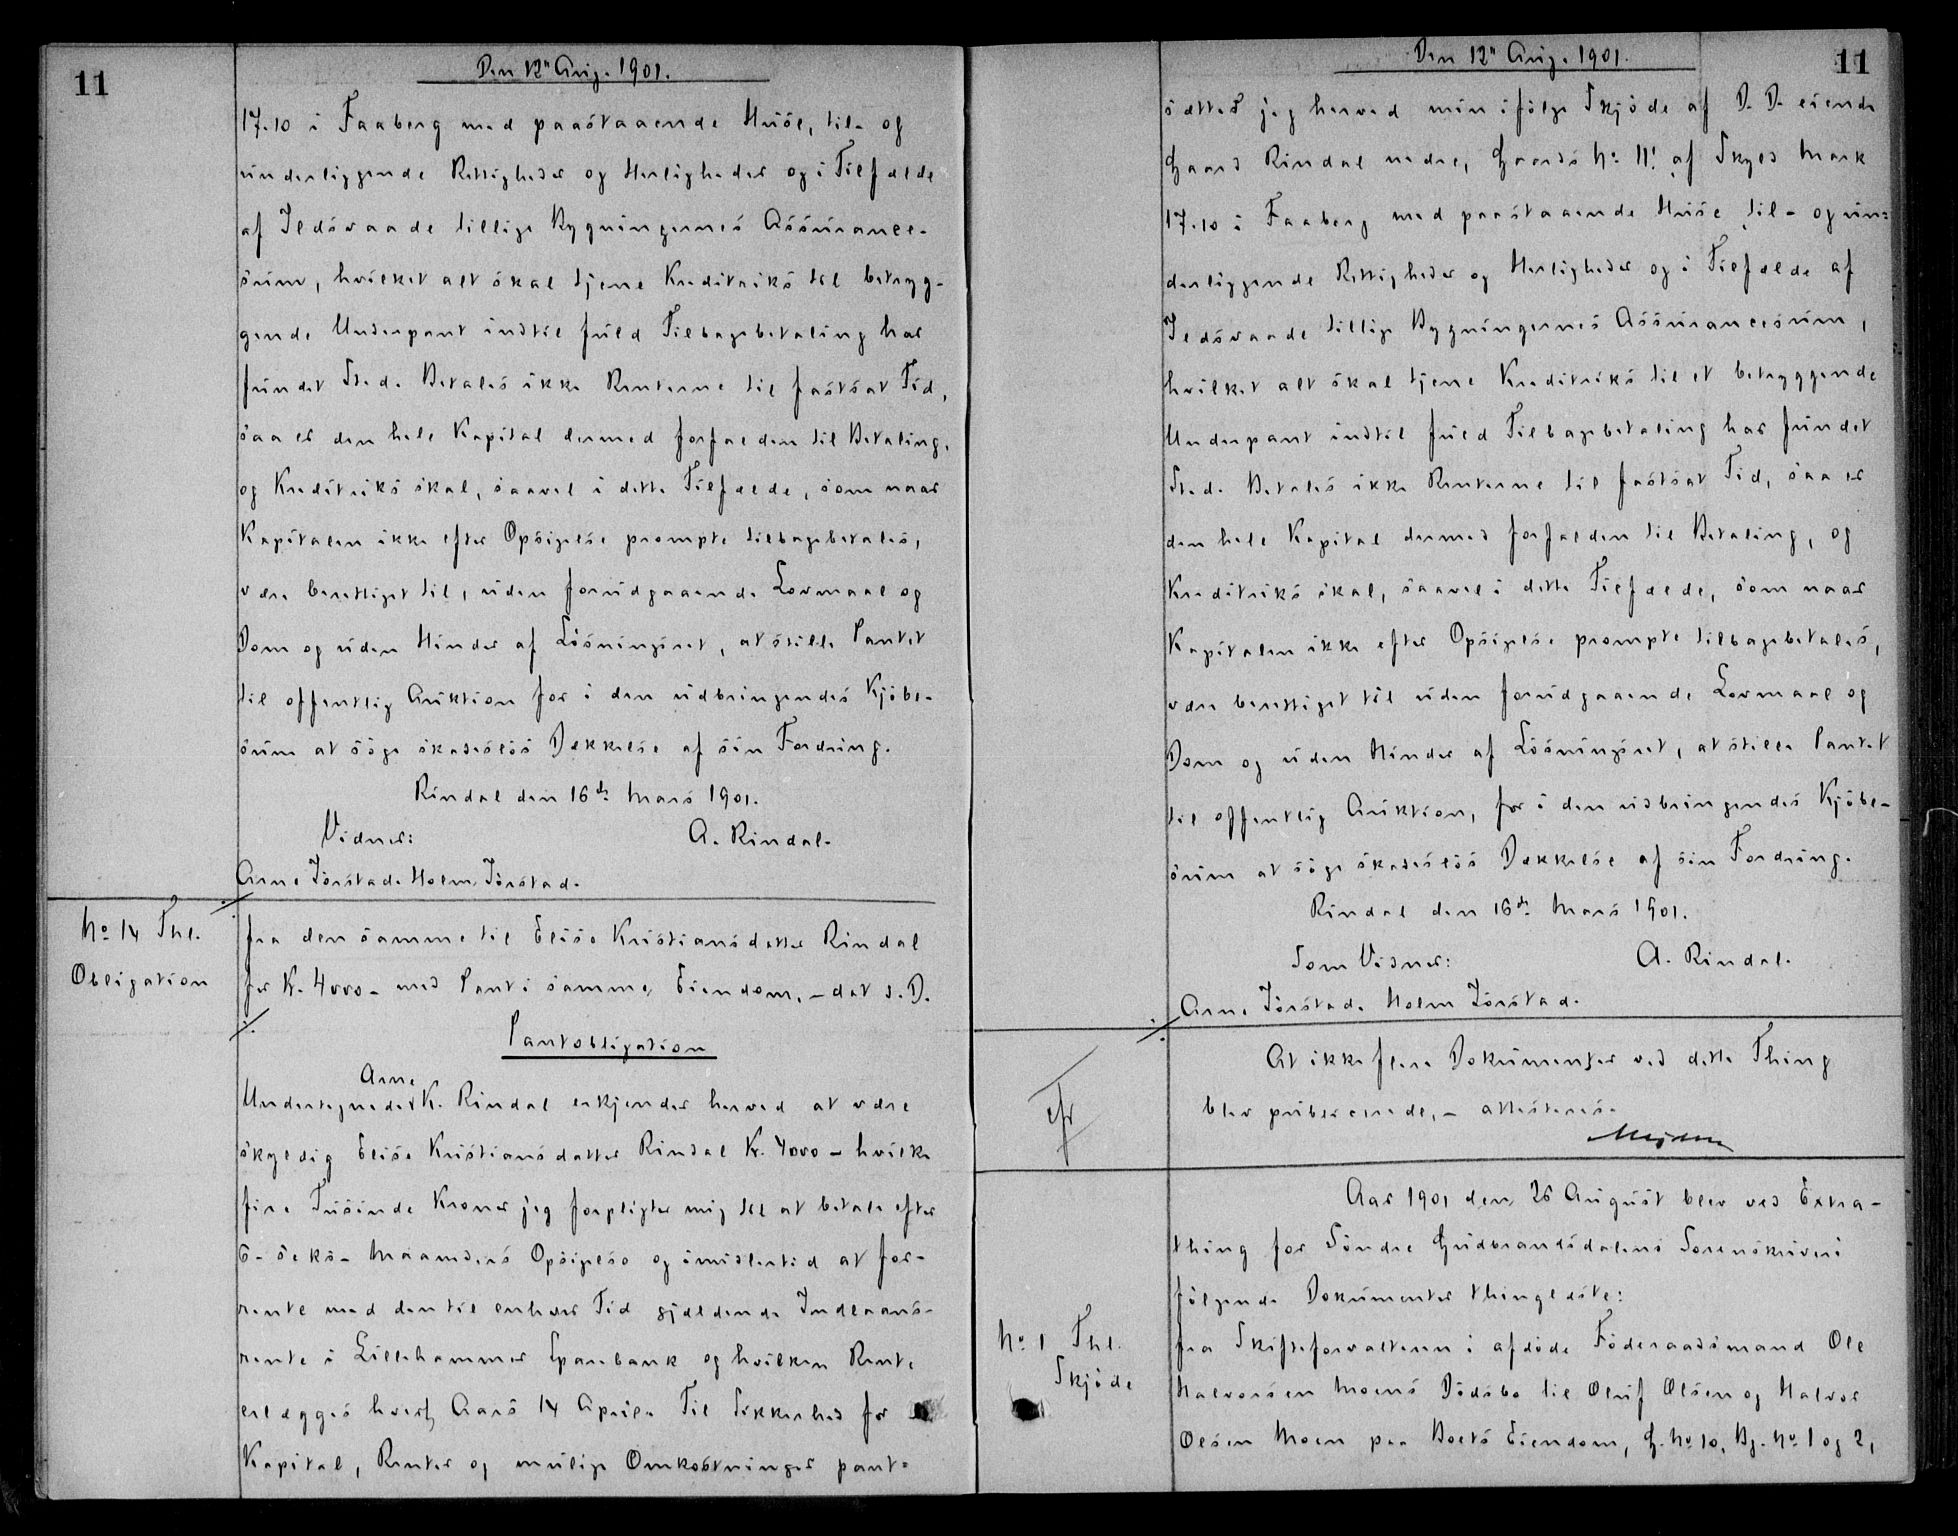 11
Den 12" Aug. 1901.
17.10 i Faaberg med paastaaende Huse, til- og
underliggende Rettigheder og Herligheder og i Tilfælde
af Ildsvaade tillige Bygningernes Assurance-
sum, hvilket alt skal tjene Kreditriks til betryg-
gende Underpant indtil fuld Tilbagebetaling har
fundet Sted. Betales ikke Renterne til fastsat Tid,
saa er den hele Kapital dermed forfalden til Betaling,
og Kreditriks skal, saavel i dette Tilfælde, som naar
Kapitalen ikke efter Opsigelse prompte tilbagebetales,
være berettiget til, uden forudgaaende Lovmaal og
Dom og uden Hinder af Løsningsret, at stille Pantet
til offentlig Auktion for i den udbringendes Kjøbe-
sum at søge skadesløs Dækkelse af sin Fordring.
Rindal den 16de Mars 1901.
Vidner: A. Rindal.
Arne Jørstad. Holm Jørstad.
No 14 Thl.
Obligation
fra den samme til Elise Kristiansdatter Rindal
for Kr. 4000 - med Pant i samme Eiendom, - dat s. D.
Pantobligation
Arne
Undertegnede K. Rindal erkjender herved at være
skyldig Elise Kristiansdatter Rindal Kr. 4000 - hvilke
fire Tusinde Kroner jeg forpligter mig til at betale efter
6 - seks - Maaneders Opsigelse og imidlertid at for-
rente med den til enhver Tid gjældende Indlaans-
rente i Lillehammer Sparebank og hvilken Rente
erlægges hvert Aars 14 April. Til Sikkerhed for
Kapital, Renter og mulige Omkostninger pant-
Den 12" Aug. 1901.
11
sætter jeg herved min ifølge Skjøde af D. D. eiende
Gaard Rindal nedre, Gaards No 11! af Skyld Mark
17.10 i Faaberg med paastaaende Huse til- og un-
derliggende Rettigheder og Herligheder og i Tilfælde af
Ildsvaade tillige Bygningernes Assurancesum,
hvilket alt skal tjene Kreditriks til et betryggende
Underpant indtil fuld Tilbagebetaling har fundet
Sted. Betales ikke Renterne til fastsat Tid, saa er
den hele Kapital dermed forfalden til Betaling, og
Kreditriks skal, saavel i dette Tilfælde, som naar
Kapitalen ikke efter Opsigelse prompte tilbagebetales,
være berettiget til uden forudgaaende Lovmaal og
Dom og uden Hinder af Løsningsret, at stille Pantet
til offentlig Auktion, for i den udbringendes Kjøbe-
sum at søge skadesløs Dækkelse af sin Fordring.
Rindal den 16de Mars 1901.
Som Vidner: A. Rindal.
Arne Jørstad. Holm Jørstad.
At ikke flere Dokumenter ved dette Thing
blev publicerede, - attesteres.
Aar 1901 den 26 August blev ved Extra-
thing for Søndre Gudbrandsdalens Sorenskriveri
følgende Dokumenter thinglæste:
No 1 Thl.
Skjøde
fra Skifteforvalteren i afdøde Føderaadsmand Ole
Halvorsen Moens Dødsbo til Oluf Olsen og Halvor
Olsen Moen paa Boets Eiendom, G. No 10, Bg. No 1 og 2,